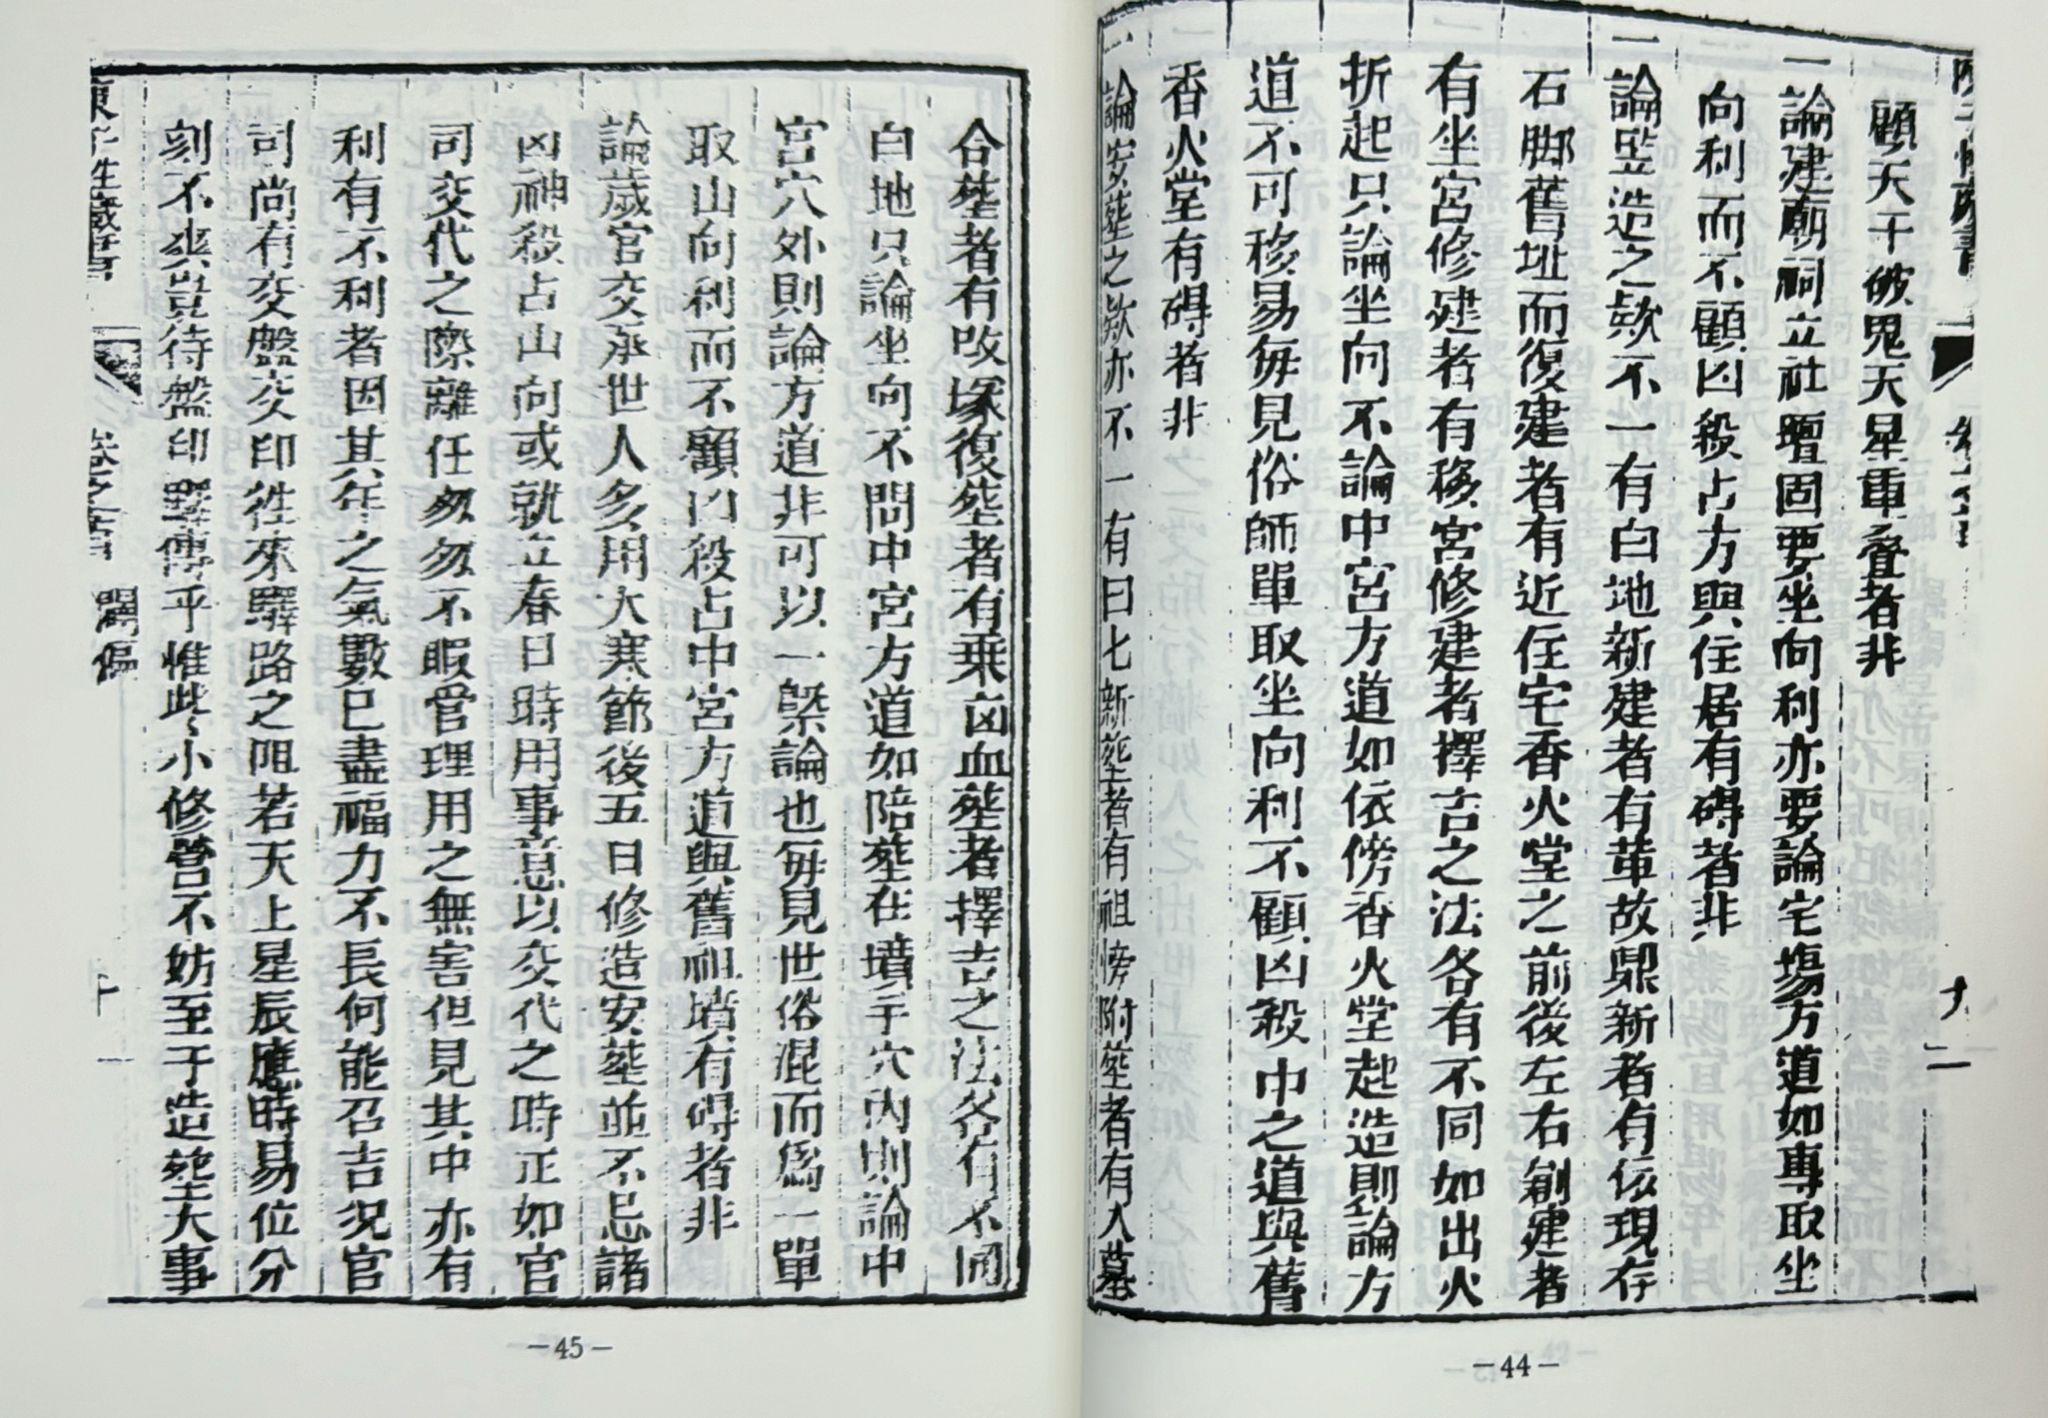 顧天干破鬼天星重叠者非
一論建廟祠立社壇固要坐向利亦要論宅塲方道如專取坐
向利而不顧凶殺占方與住居有碍者非
一論竪造之欵不一有白地新建者有革故鼎新者有依現存
石脚舊址而復建者有近住宅香火堂之前後左右剏建者
有坐宮修建者有移宮修建者擇吉之法各有不同如出火
折起只論坐向不論中宮方道如依傍香火堂起造則論方
道不可移易每見俗師單取坐向利不顧凶殺中之道與舊
香火堂有碍者非
一論安葬之欵亦不一有曰七新葬者有祖傍附葬者有人墓
—44—
合塟者有改塚復塟者有乗凶血塟者擇吉之法各有不同
白地只論坐向不問中宮方道如陪塟在墳手穴內則論中
宮穴外則論方道非可以一槩論也每見世俗混而為一單
取山向利而不顧凶殺占中宮方道與舊祖墳有碍者非
論歲官交承世人多用大寒節後五日修造安塟並不忌諸
凶神殺占山向或就立春日時用事意以交代之時正如官
司交代之際離任匆匆不暇管理用之無害但見其中亦有
利有不利者因其年之氣數已盡福力不長何能召吉况官
司尚有交盤交印徃來驛路之阻若天上星辰應時易位分
刻不爽豈待盤印驛傳乎惟此小修營不妨至于造塟大事
陳子性藏書
卷之首
闢偽
十
—45—